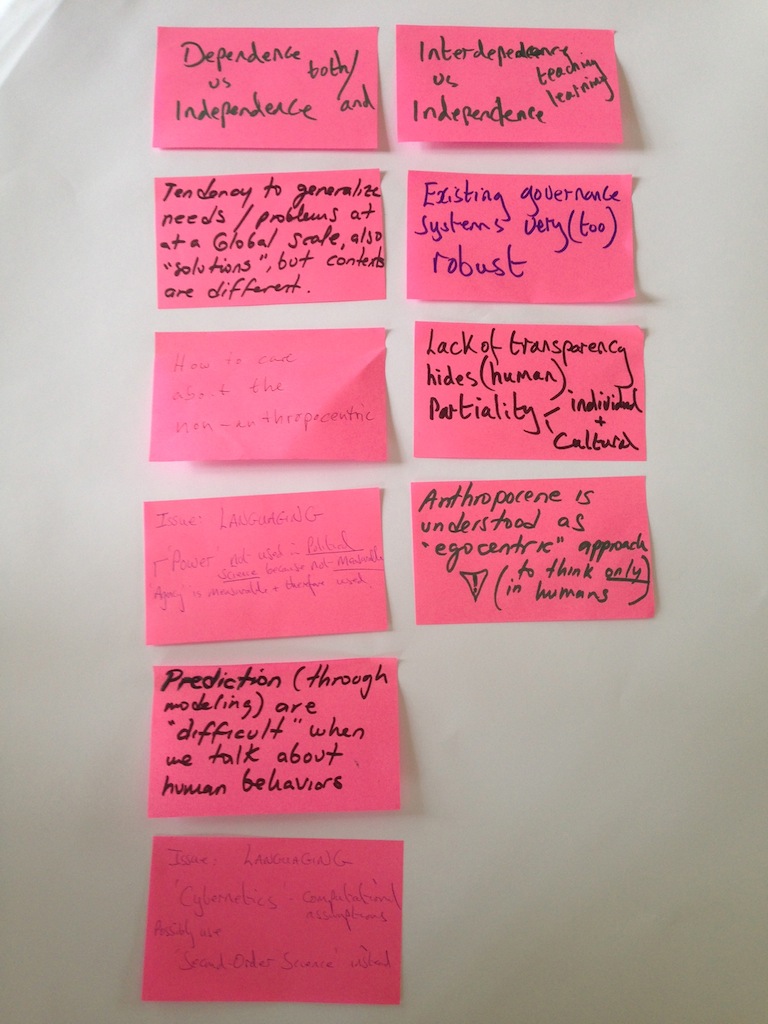 Dependence
vs both/
Independence and
Interdependence
vs teaching
Independence learning
Tendency to generalize
needs / problems at
at a Global scale, also
"solutions", but contexts
are different.
Existing governance
systems very (too)
robust
How to care
about the
non-anthropocentric
Lack of transparency
hides (human)
Partiality - individual
+
Cultural
Issue: LANGUAGING
'Power' not used in Political
Science because not measurable
'Agency' is measurable + therefore used
Anthropocene is
understood as
"egocentric" approach
! (to think only
in humans)
Prediction (through
modeling) are
"difficult" when
we talk about
human behaviors
Issue: LANGUAGING
'Cybernetics' - computational
assumptions
Possibly use
'Second-Order Science' instead